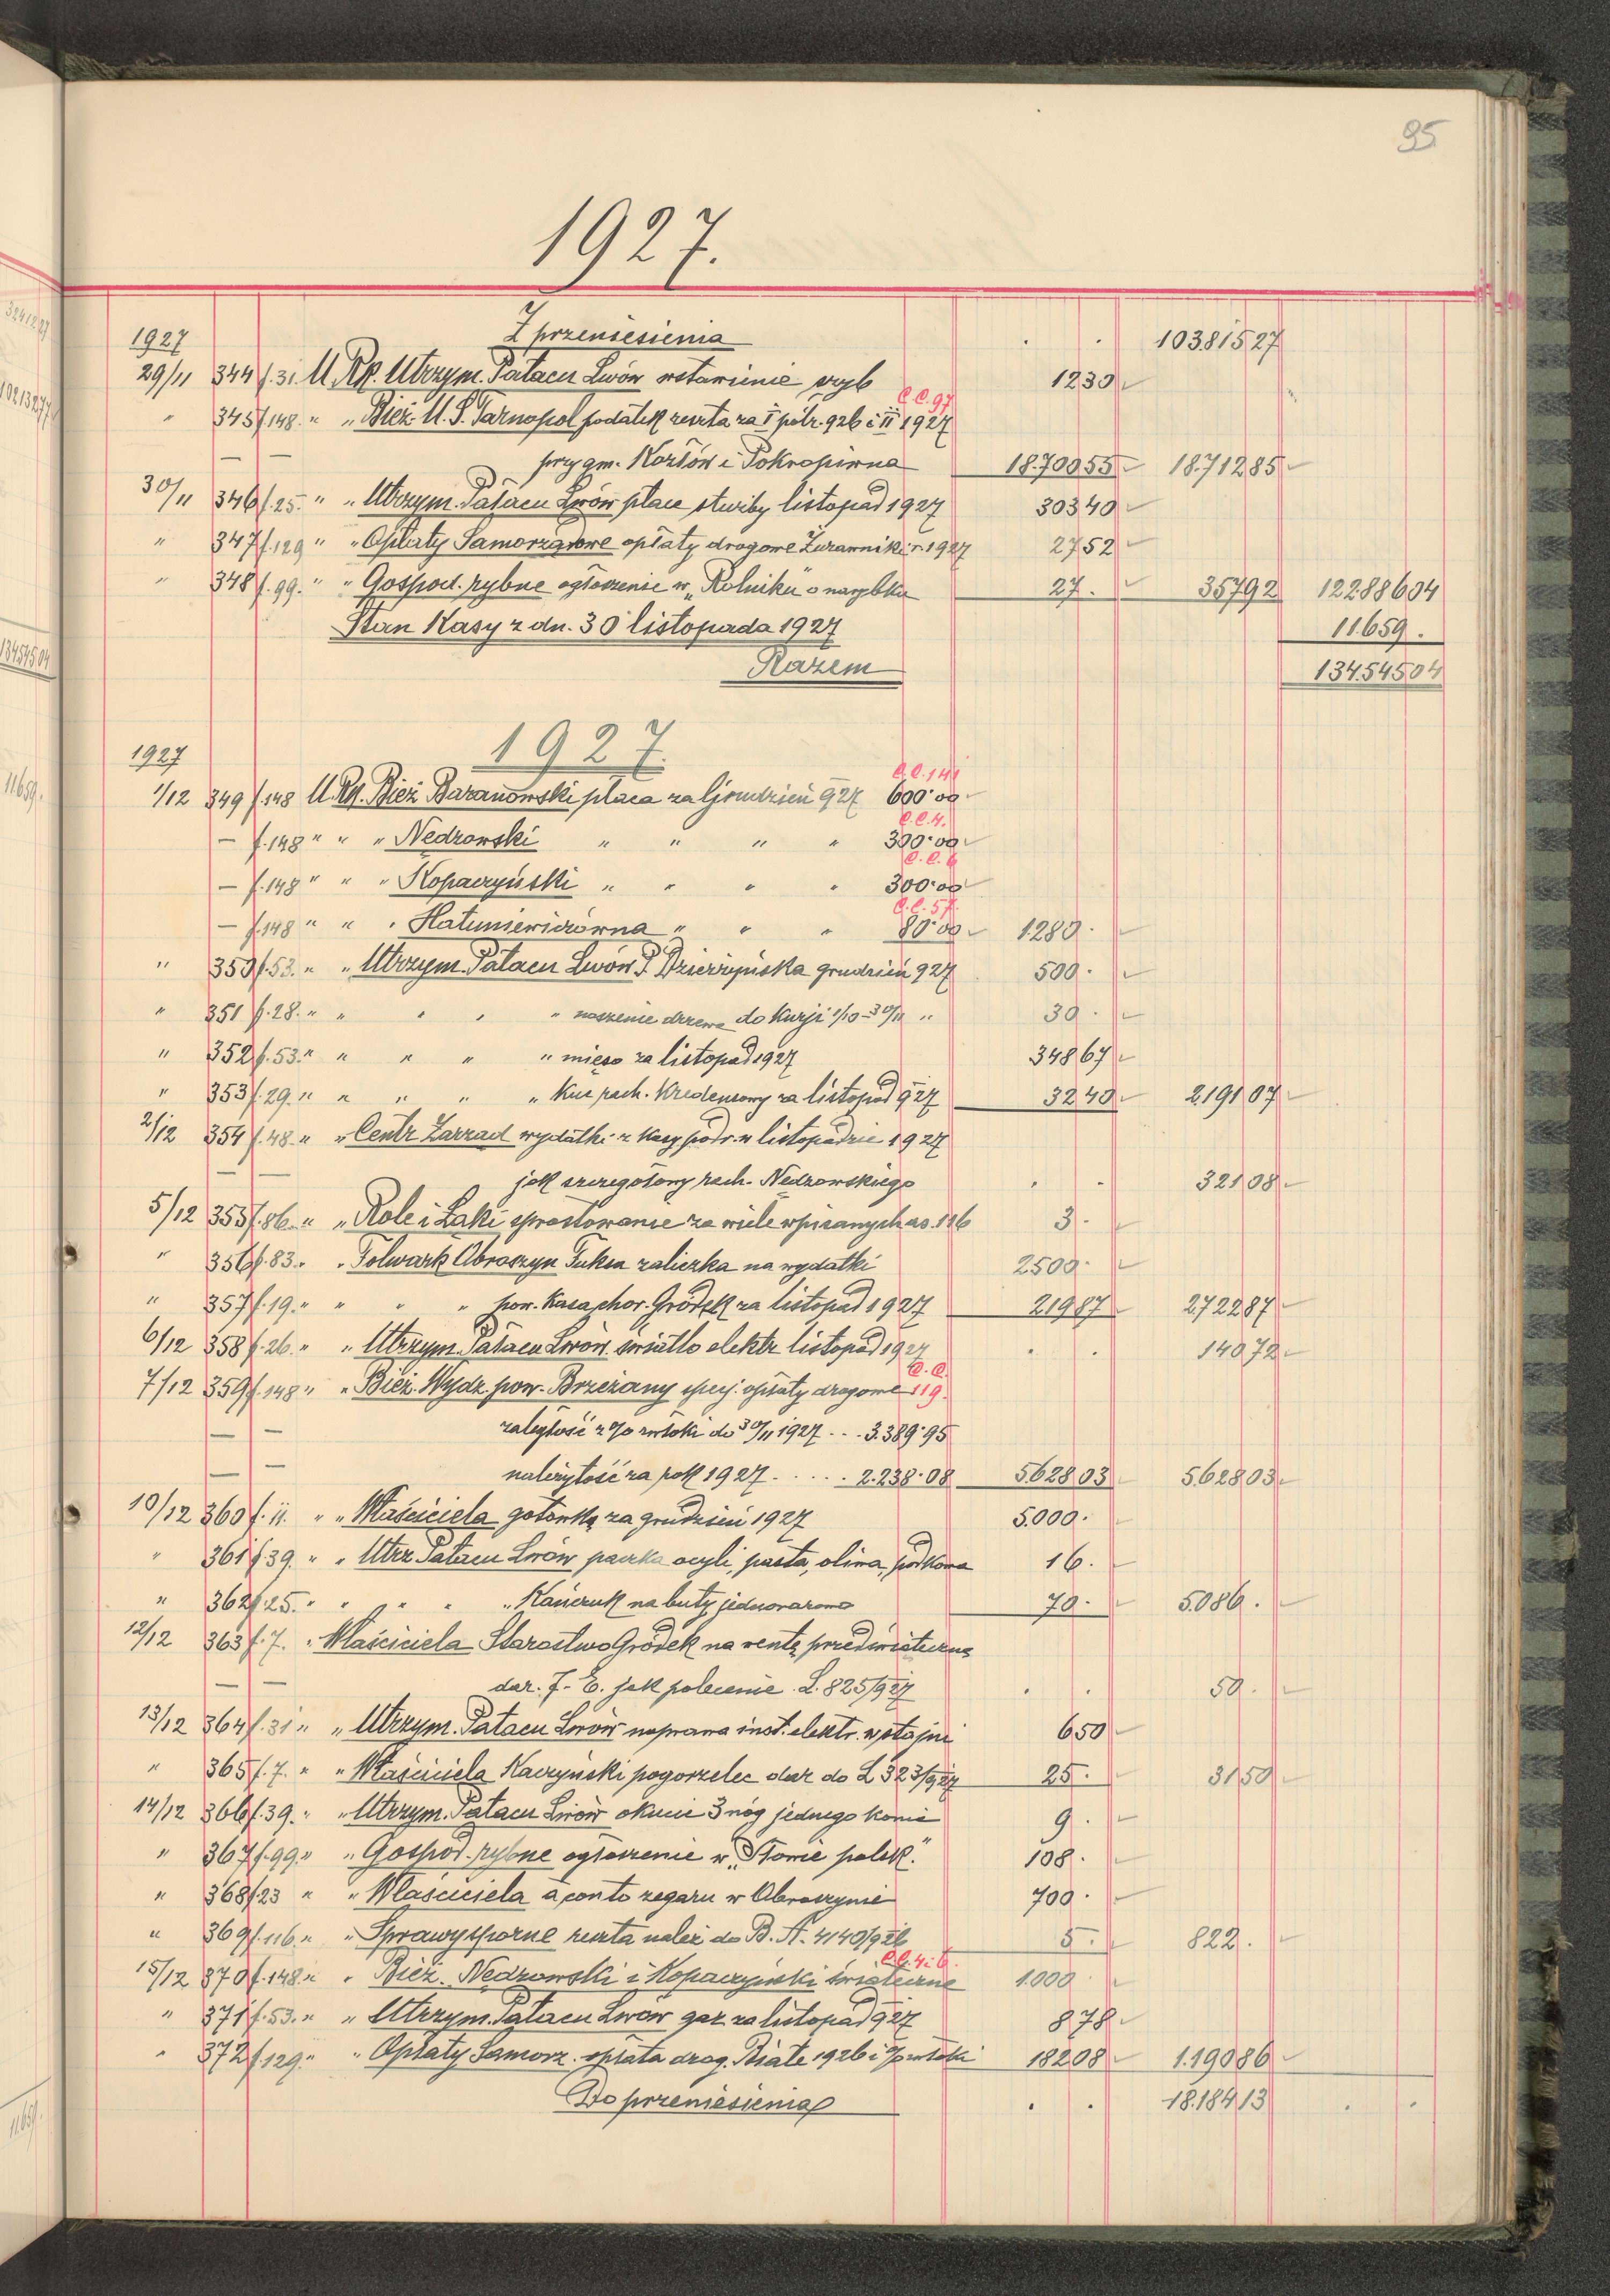 95
1927.
Z przeniesienia . . 103.815 27
1927
29/11 344 f. 31. U. Rp. Utrzym. Pałacu Lwów wstawienie szyb 12 30
C.C. 97
" 345 f. 148. " " Bież. U. S. Tarnopol podatek reszta za I półr. 926 i II 1927
— — przy gm. Kozłów i Pokropiwna 18.700 55 18.712 85
30/11 346 f. 25. " " Utrzym. Pałacu Lwów płace służby listopad 1927 303 40
" 347 f. 129 " " Opłaty Samorządowe opłaty drogowe Żurawniki r. 1927 27 52
" 348 f. 99. " " Gospod. rybne ogłoszenie w „Rolniku" o narybku 27 . 357 92 122.886 04
Stan Kasy z dn. 30 listopada 1927 11.659 .
Razem 134.545 04
1927.
1927
C.C. 141
1/12 349 f. 148 U. Rp. Bież. Baranowski płaca za grudzień 927 600·00
C.C. 4.
— f. 148 " " " Nedzowski " " " " 300·00
C.C. 6
— f. 148 " " " Kopaczyński " " " " 300·00
C.C. 57.
— f. 148 " " " Hatuniewiczówna " " " 80·00 1.280 .
" 350 f. 53. " " Utrzym. Pałacu Lwów P. Dzierżyńska grudzień 927 500 .
" 351 f. 28. " " " " " noszenie drzewa do kurji 1/10 - 30/11 " 30 .
" 352 f. 53. " " " " " mięso za listopad 1927 348 67
" 353 f. 29. " " " " " Kuś rach. Kredensowy za listopad 927 32 40 2.191 07
2/12 354 f. 48. " " Centr. Zarząd wydatki z kasy podr. w listopadzie 1927
— — jak szczegółowy rach. Nedzowskiego . . 321 08
5/12 355 f. 86. " " Role i Łąki sprostowanie za wiele wpisanych as. 116 3 .
" 356 f. 83. " " Folwark Obroszyn Fuksa zaliczka na wydatki 2500 .
" 357 f. 19. " " " " pow. Kasa chor. Gródek za listopad 1927 219 87 2.722 87
6/12 358 f. 26. " " Utrzym. Pałacu Lwów światło elektr. listopad 1927 . . 140 72
C.C.
7/12 359 f. 148 " " Bież. Wydz. pow. Brzeżany spec. opłaty drogowe 119.
— — zaległość z % zwłoki do 30/11 1927 . . . 3.389·95
— — należytość za rok 1927 . . . . . 2.238·08 5.628 03 5.628 03
10/12 360 f. 11. " " Właściciela gotówką za grudzień 1927 5.000 .
" 361 f. 39. " " Utrz. Pałacu Lwów paczka ocyli, pasta, oliwa, podkowa 16 .
" 362 f. 25. " " " " " Kańczuk na buty jednorazowo 70 . 5.086 .
12/12 363 f. 7. " Właściciela Starostwo Gródek na rentę przedświąteczną
— — dar. J. E. jak polecenie L. 825/927 . . 50 .
13/12 364 f. 31 " " Utrzym. Pałacu Lwów naprawa inst. elektr. w stajni 6 50
" 365 f. 7. " " Właściciela Kaczyński pogorzelec dar do L 323/927 25 . 31 50
14/12 366 f. 39. " " Utrzym. Pałacu Lwów okucie 3 nóg jednego konia 9 .
" 367 f. 99. " " Gospod. rybne ogłoszenie w „Słowie polsk." 108 .
" 368 f. 23 " " Właściciela à conto zegaru w Obroszynie 700 .
" 369 f. 116. " " Sprawy sporne reszta należ. do B. A. 4140/926 5 . 822 .
C.C. 4 i 6.
15/12 370 f. 148. " " Bież. Nedzowski i Kopaczyński świąteczne 1.000 .
" 371 f. 53. " " Utrzym. Pałacu Lwów gaz za listopad 927 8 78
" 372 f. 129. " " Opłaty Samorz. opłata drog. Białe 1926 i % zwłoki 182 08 1.190 86
Do przeniesienia . . 18.184 13 . .